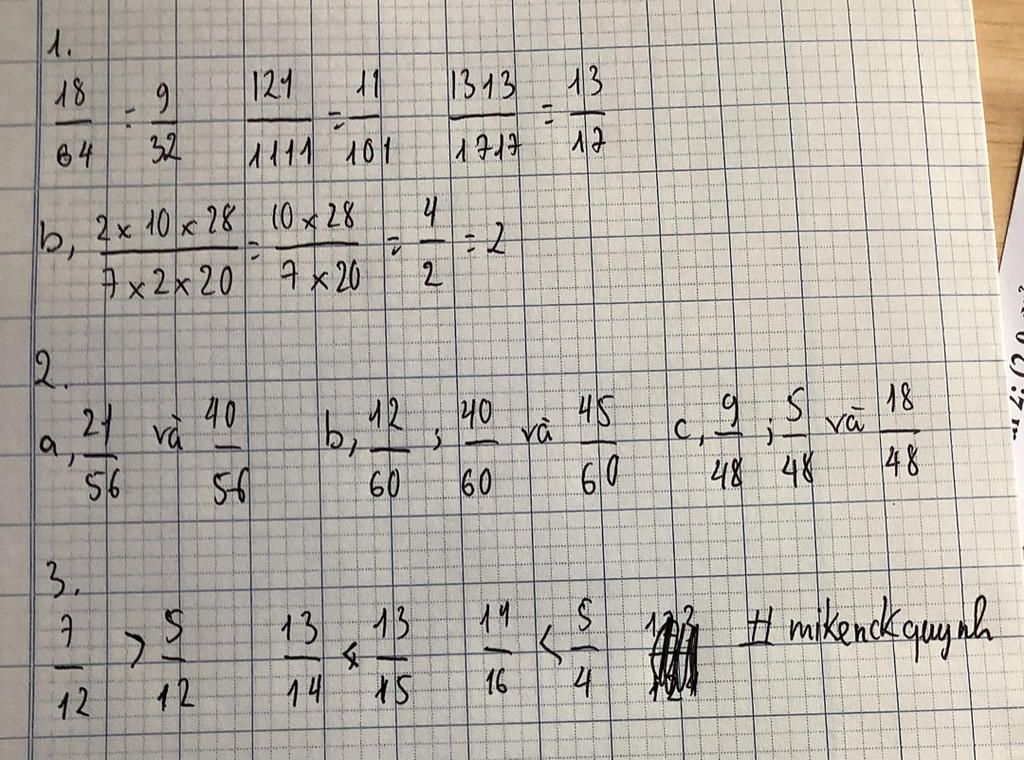 1.
18/64 = 9/32 121/1111 = 11/101 1313/1717 = 13/17
b, 2 x 10 x 28 / 7 x 2 x 20 = 10 x 28 / 7 x 20 = 4/2 = 2
2.
a, 21/56 và 40/56 b, 12/60 ; 40/60 và 45/60 c, 9/48 ; 5/48 và 18/48
3.
7/12 > 5/12 13/14 < 13/15 /16 < 5/4 # mikenckquynh